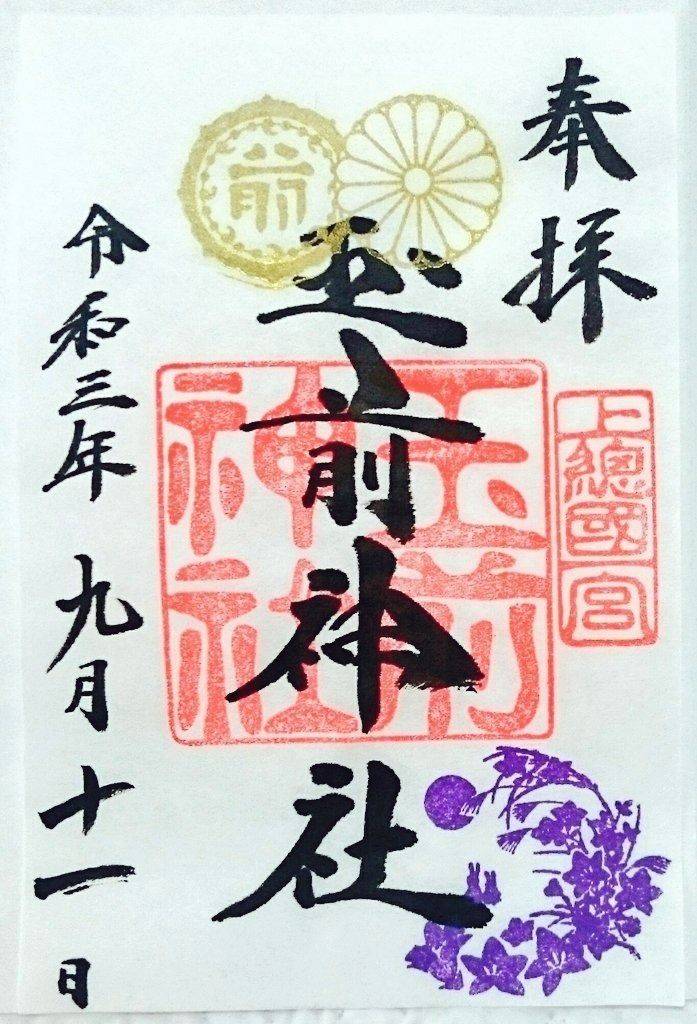 奉拝
上總國一宮
前
玉前神社
玉前神社
令和三年 九月 十一日